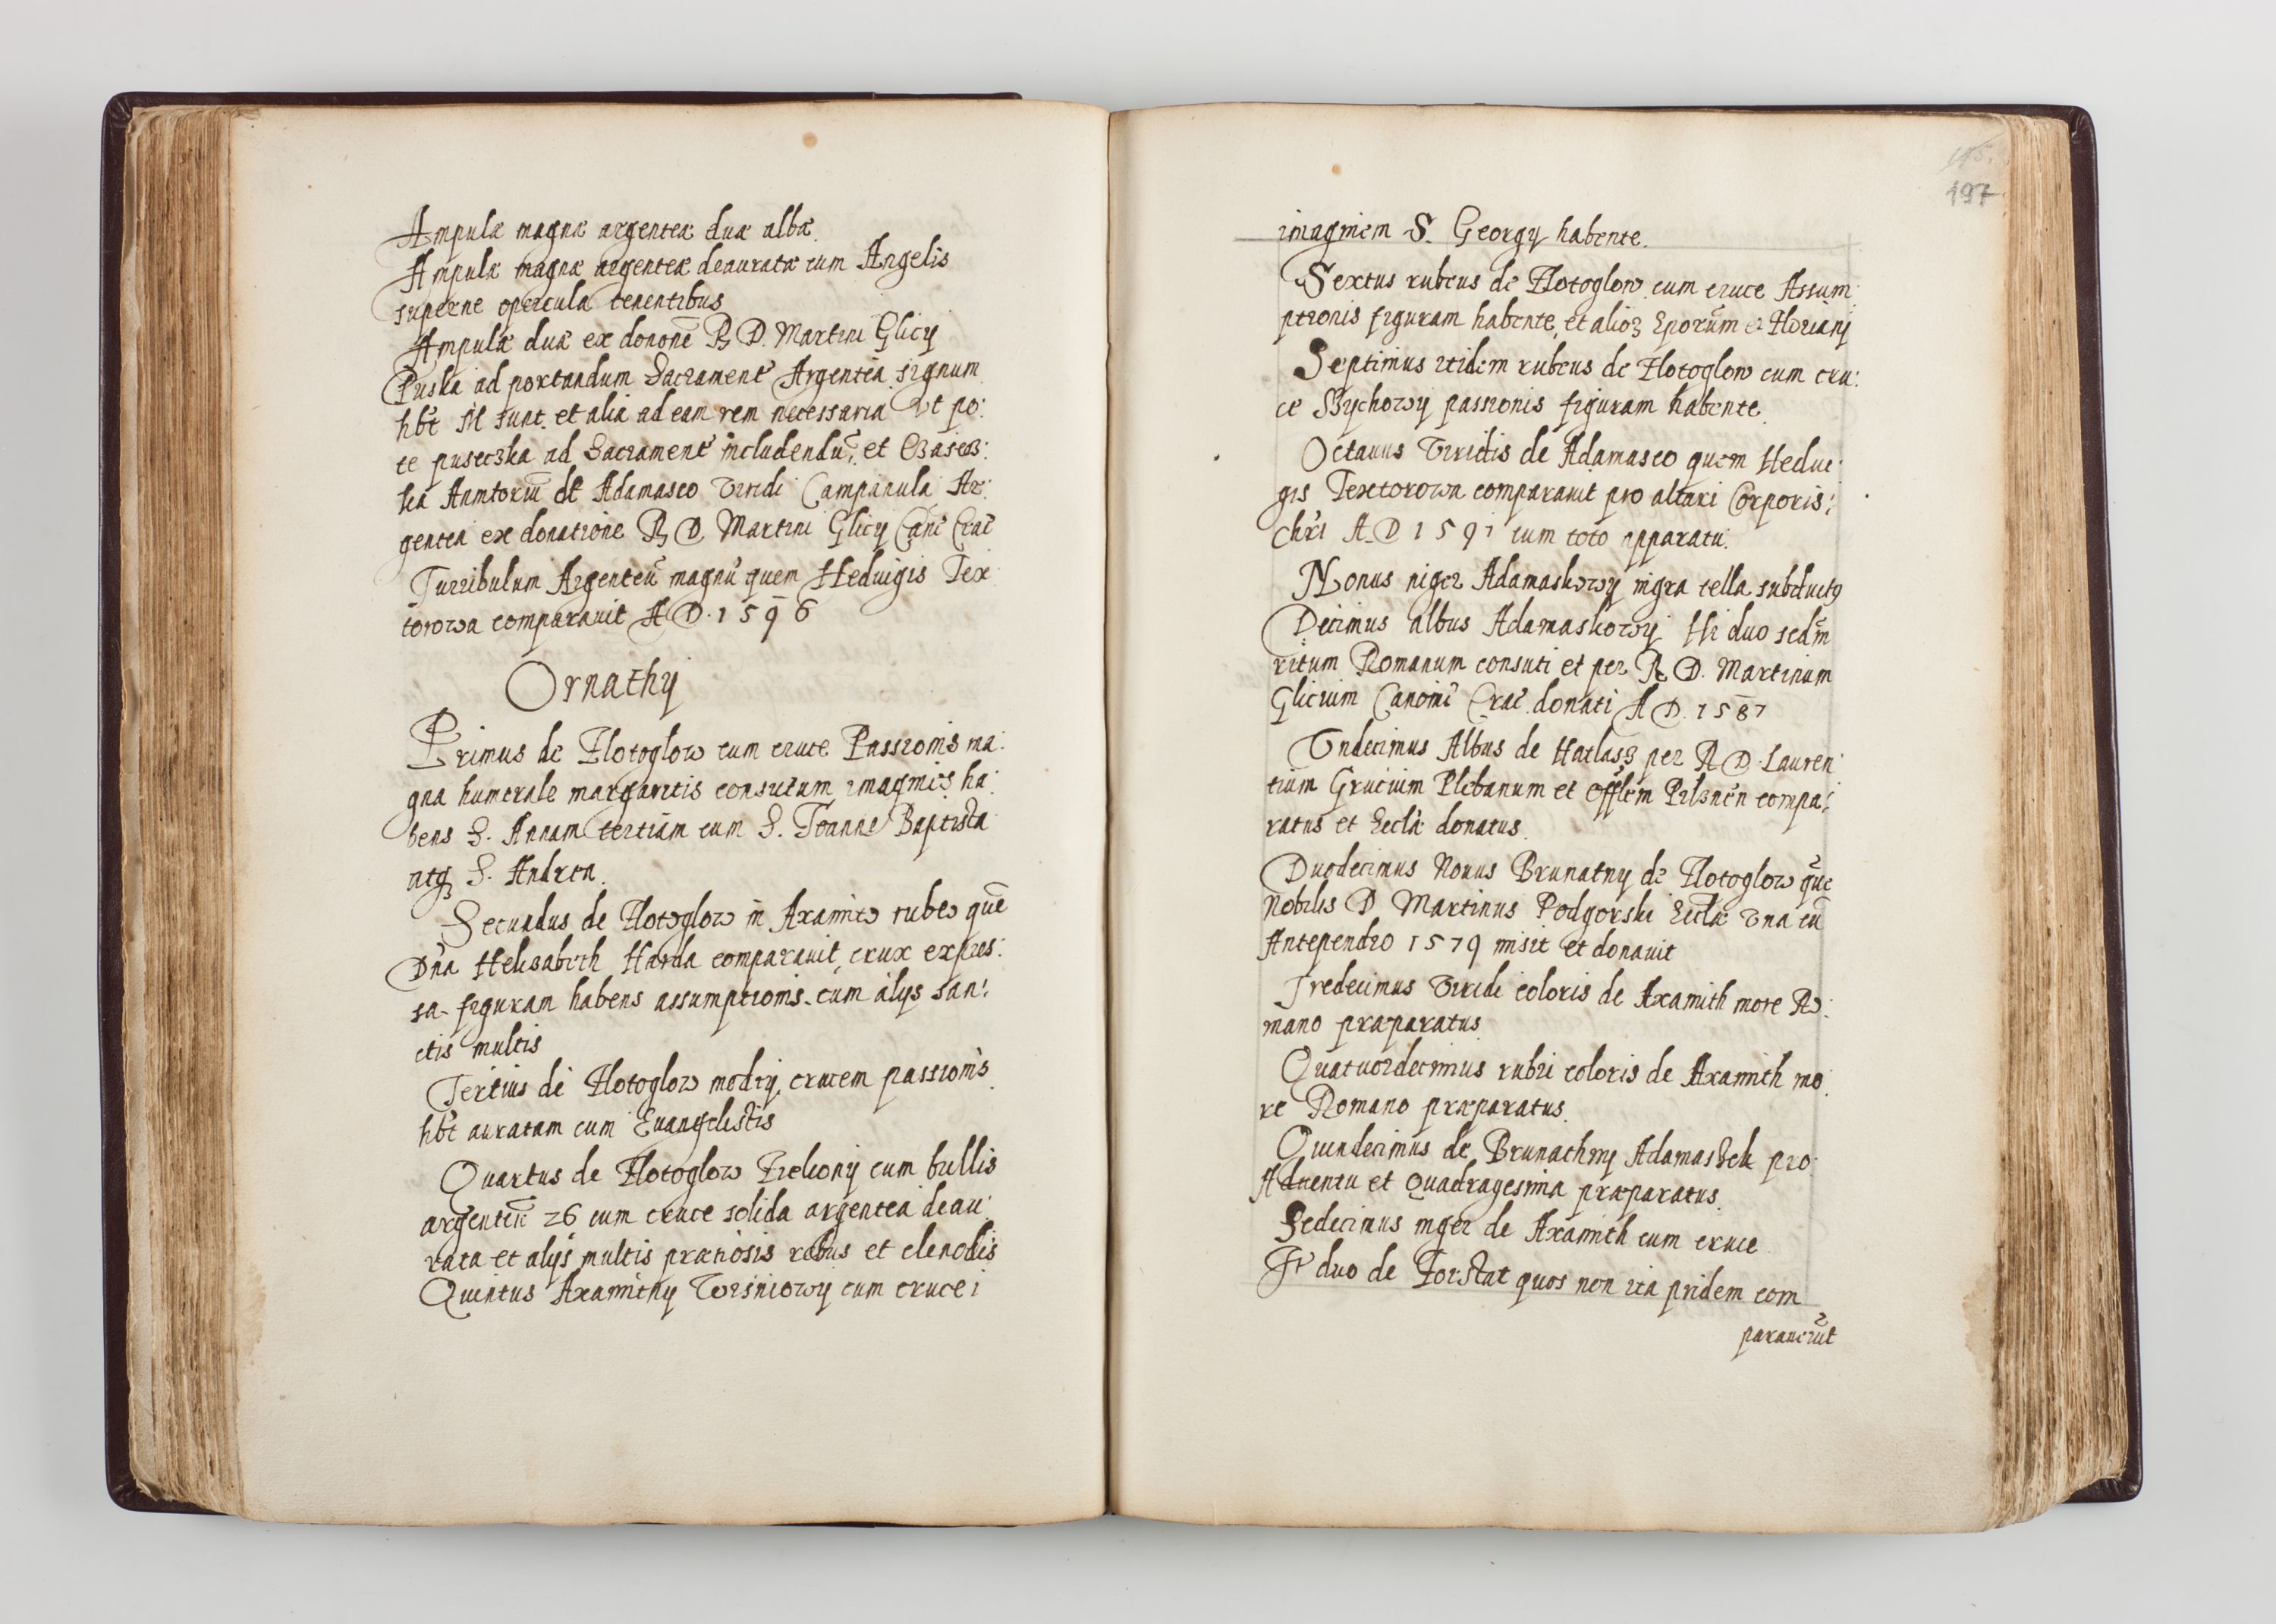 Ampulæ magnæ argenteæ duæ albæ.
Ampulæ magnæ argenteæ deauratæ cum Angelis
superne opercula tenentibus
Ampulæ duæ ex donoñe R D. Martini Glicy
Puska ad portandum Sacrament Argentea signum
hbt et alia ad eam rem necessaria Vt po:
te puseczka ad Sacrament includendũ, et
de Adamasco Viridi Campanula Ar:
gentea ex donatione R D. Martini Glicy Canc Crac
Turribulum Argenteũ magnũ quem Heduigis Tex
torowa comparauit A D. 1596
Ornathy
Primus de Zlotoglow cum cruce Passionis ma:
gna humerale margaritis consutum imagines ha:
bens S. Annam tertiam cum S. Joanne Baptista
atq3 S. Andrea.
Secundus de Zlotoglow in Axamito rubeo quẽ
Dña Helisabeth Harda comparauit, crux expres:
sa figuram habens assumptionis cum alys san:
ctis multis
Tertius de Zlotoglow modry, crucem passionis
hbt auratam cum Euangelistis
Quartus de Zlotoglow Zielony cum bullis
argenteis 26 cum cruce solida argentea deau:
rata et alys multis prætiosis rebus et clenodis
Quintus Axamithy Wisniowy cum cruce i
195.
197
imaginem S. Georgy habente.
Sextus rubeus de Zlotoglow cum cruce Assum:
ptionis figuram habente, et alio3 Eporũm et Floriani
Septimus itidem rubeus de Zlotoglow cum cru:
ce Szychowy passionis figuram habente.
Octauus Viridis de Adamasco quem Hedui:
gis Textorowa comparauit pro altari Corporis:
Chri A D 1591 cum toto apparatu.
Nonus niger Adamaskowy nigra tella subductus
Decimus albus Adamaskowy Hi duo secdm
ritum Romanum consuti et per R D. Martinum
Glicium Canonic Crac donati A D. 1587
Vndecimus Albus de Hatlas3 per R D. Lauren
tium Grucium Plebanum et Offlem Pilznen compa:
ratus et Eccla donatus.
Duodecimus Nouus Brunatny de Zlotoglow quẽ
Nobilis D Martinus Podgorski Eccla Vna cũ
Antependio 1579 misit et donauit
Tredecimus Viridi coloris de Axamith more Ro:
mano præparatus
Quatuordecimus rubri coloris de Axamith mo:
re Romano præparatus.
Quindecimus de Brunathny Adamaszek pro
Aduentu et Quadragesima præparatus.
Sedecimus niger de Axamith cum cruce
It duo de Forstat quos non ita pridem com
parauerũt